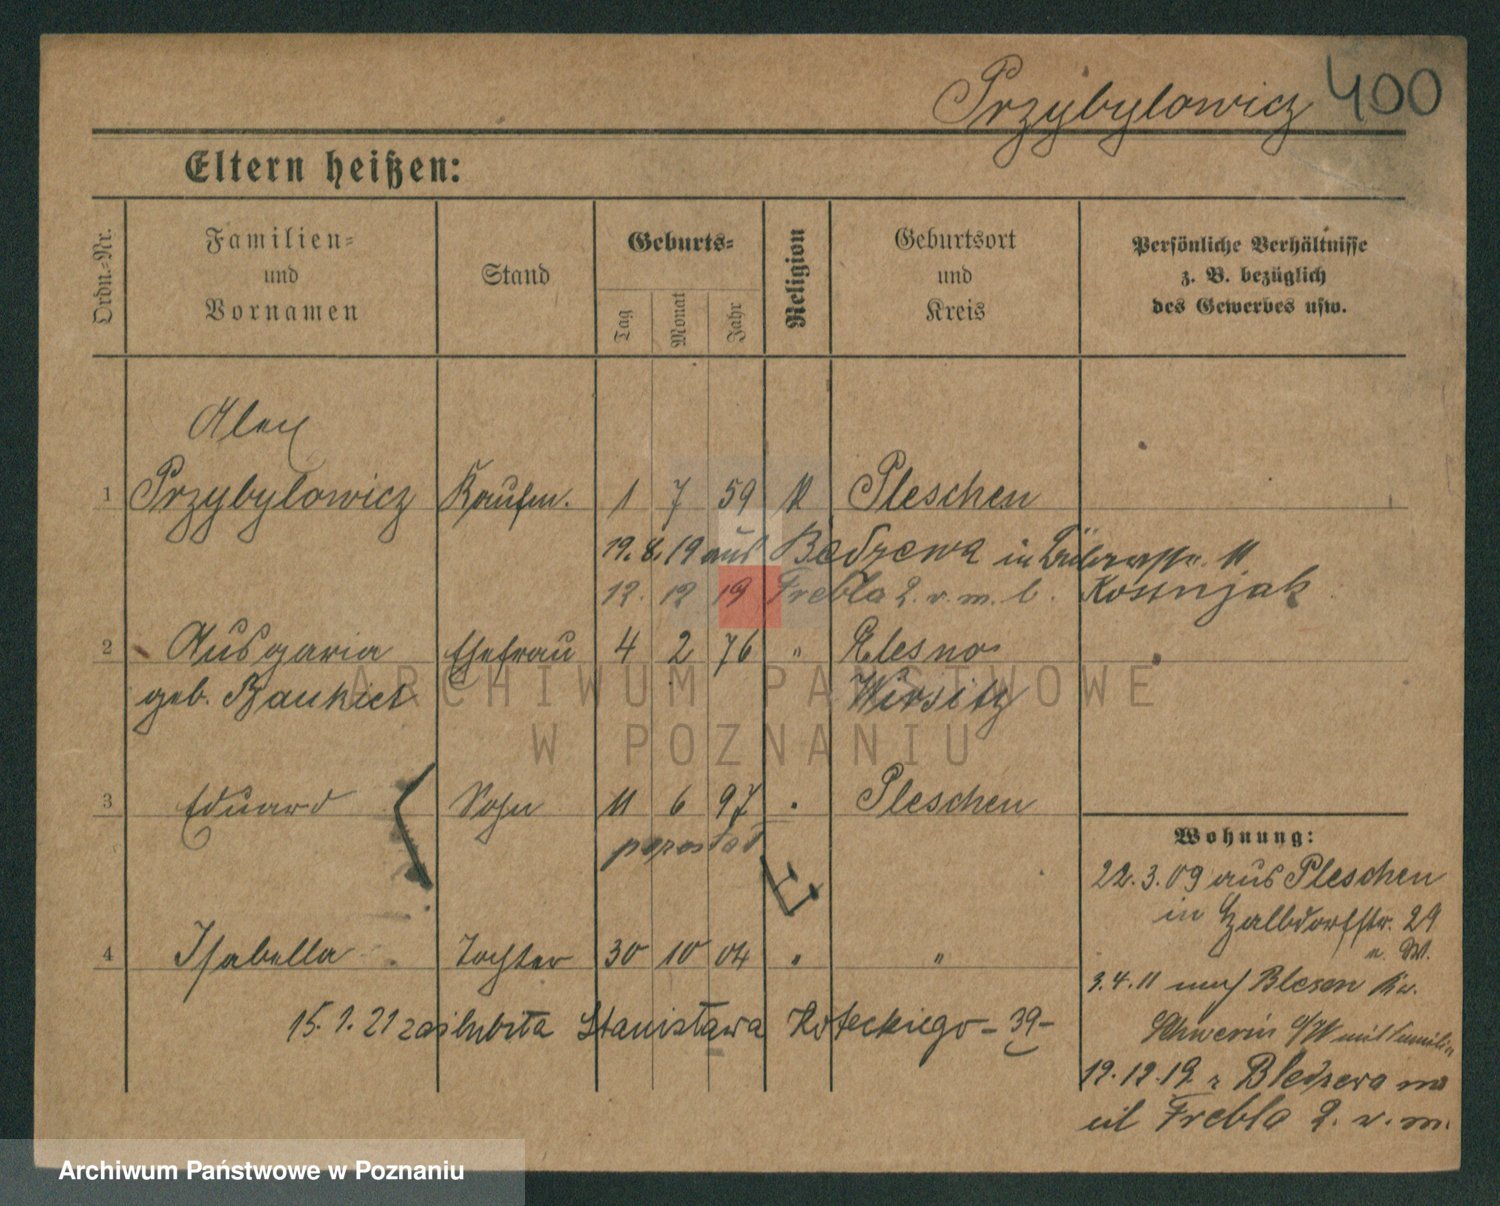 Przybylowicz 400
Eltern heißen:
Ordn.-Nr.
Familien-
und
Vornamen
Stand
Geburts-
Tag
Monat
Jahr
Religion
Geburtsort
und
Kreis
Persönliche Verhältnisse
z. B. bezüglich
des Gewerbes usw.
Alex
1 Przybylowicz Kaufm. 1 7 59 K Pleschen
19. 8. 19 aus in
12. 12 19 Frebla 2. v. m. b.
2 Ehefrau 4 2 76 "
geb. Wirsitz
3 Eduard Sohn 11 6 97 . Pleschen
pozostał
4 Isabella Tochter 30 10 04 " "
15. 1. 21 zaślubiła Stanisława Koteckiego - 39 -
Wohnung:
22. 3. 09 aus Pleschen
in Halbdorfstr. 29
3. 4. 11 nach Blesen Kr.
Schwerin a/W mit Familie
19. 12. 19 z Bledzewa na
ul Frebla 2. v. m.
ARCHIWUM PAŃSTWOWE
W POZNANIU
Archiwum Państwowe w Poznaniu